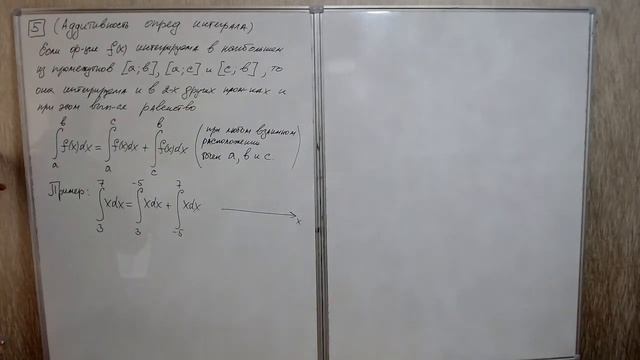 5 (Аддитивность опред интеграла)
Если ф-ция f(x) интегрируема в наибольшем
из промежутков [a; b], [a; c] и [c, b], то
она интегрируема и в 2-х других пром-ках и
при этом вып-ся равенство
∫_a^b f(x)dx = ∫_a^c f(x)dx + ∫_c^b f(x)dx (при любом взаимном
расположении
точек a, b и c.)
Пример: ∫_3^7 xdx = ∫_3^-5 xdx + ∫_-5^7 xdx
x